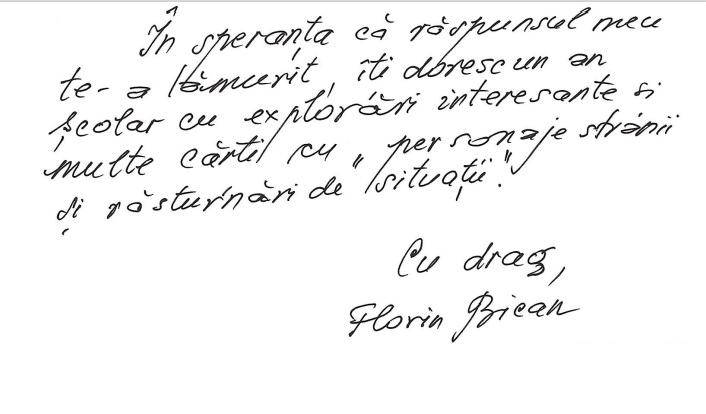 În speranța că răspunsul meu
te-a lămurit, îți doresc un an
școlar cu explorări interesante si
multe cărti cu „personaje stranii
și răsturnări de situații".
Cu drag,
Florin Bican